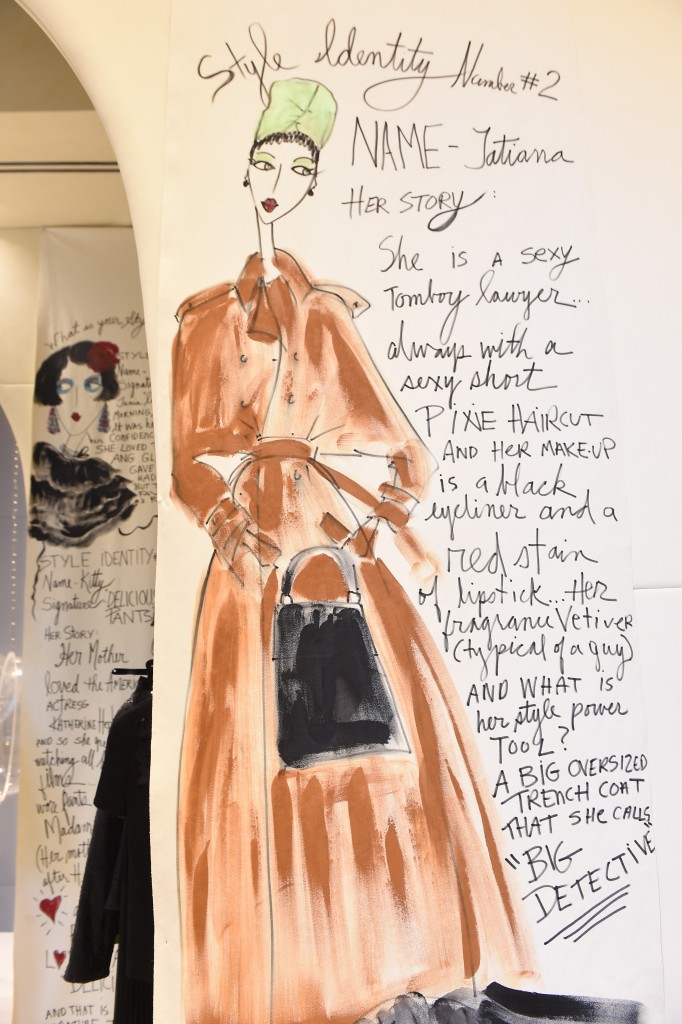 Style Identity Number #2
NAME - Tatiana
HER STORY:
She is a sexy
Tomboy lawyer...
always with a
sexy short
PIXIE HAIRCUT
AND HER MAKE-UP
is a black
eyeliner and a
red stain
of lipstick... Her
fragrance Vetiver
(typical of a guy)
AND WHAT IS
her style power
TOOL?
A BIG OVERSIZED
TRENCH COAT
THAT SHE CALLS
"BIG
DETECTIVE"
What is your
STYLE
Name-
MORNING,
it was
CONFIDENCE
SHE LOVED
GAVE
HAD
STYLE IDENTITY
Name- Kitty
Signature DELICIOUS
PANTS
HER STORY:
Her Mother
loved the
ACTRESS
KATHERINE
AND SO she
watching all
films
wore pants
Madam
(Her
after H
AND THAT IS